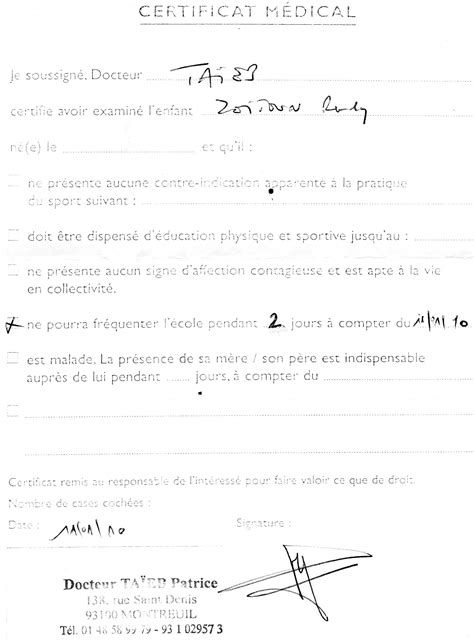 CERTIFICAT MÉDICAL
Je soussigné, Docteur TAÏEB
certifie avoir examiné l'enfant
né(e) le et qu'il :
ne présente aucune contre-indication apparente à la pratique
du sport suivant :
doit être dispensé d'éducation physique et sportive jusqu'au :
ne présente aucun signe d'affection contagieuse et est apte à la vie
en collectivité.
ne pourra fréquenter l'école pendant 2 jours à compter du 11/01/10
est malade. La présence de sa mère / son père est indispensable
auprès de lui pendant jours, à compter du
Certificat remis au responsable de l'intéressé pour faire valoir ce que de droit.
Nombre de cases cochées :
Date : 11/01/10 Signature :
Docteur TAÏEB Patrice
138, rue Saint Denis
93100 MONTREUIL
Tél. 01 48 58 99 79 - 93 1 02957 3